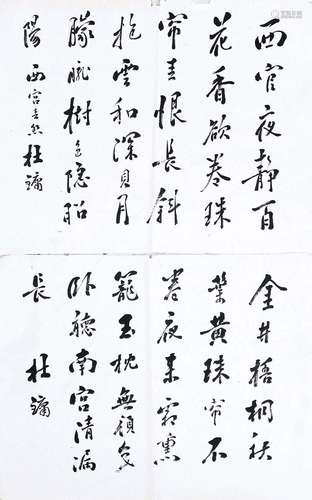 西宫夜靜百
花香欲卷珠
帘春恨長斜
抱雲和深見月
朦朧樹色隱昭
陽 西宫春怨 杜鏞
金井梧桐秋
葉黄珠帘不
卷夜来霜熏
籠玉枕無顔色
卧聽南宫清漏
長 杜鏞